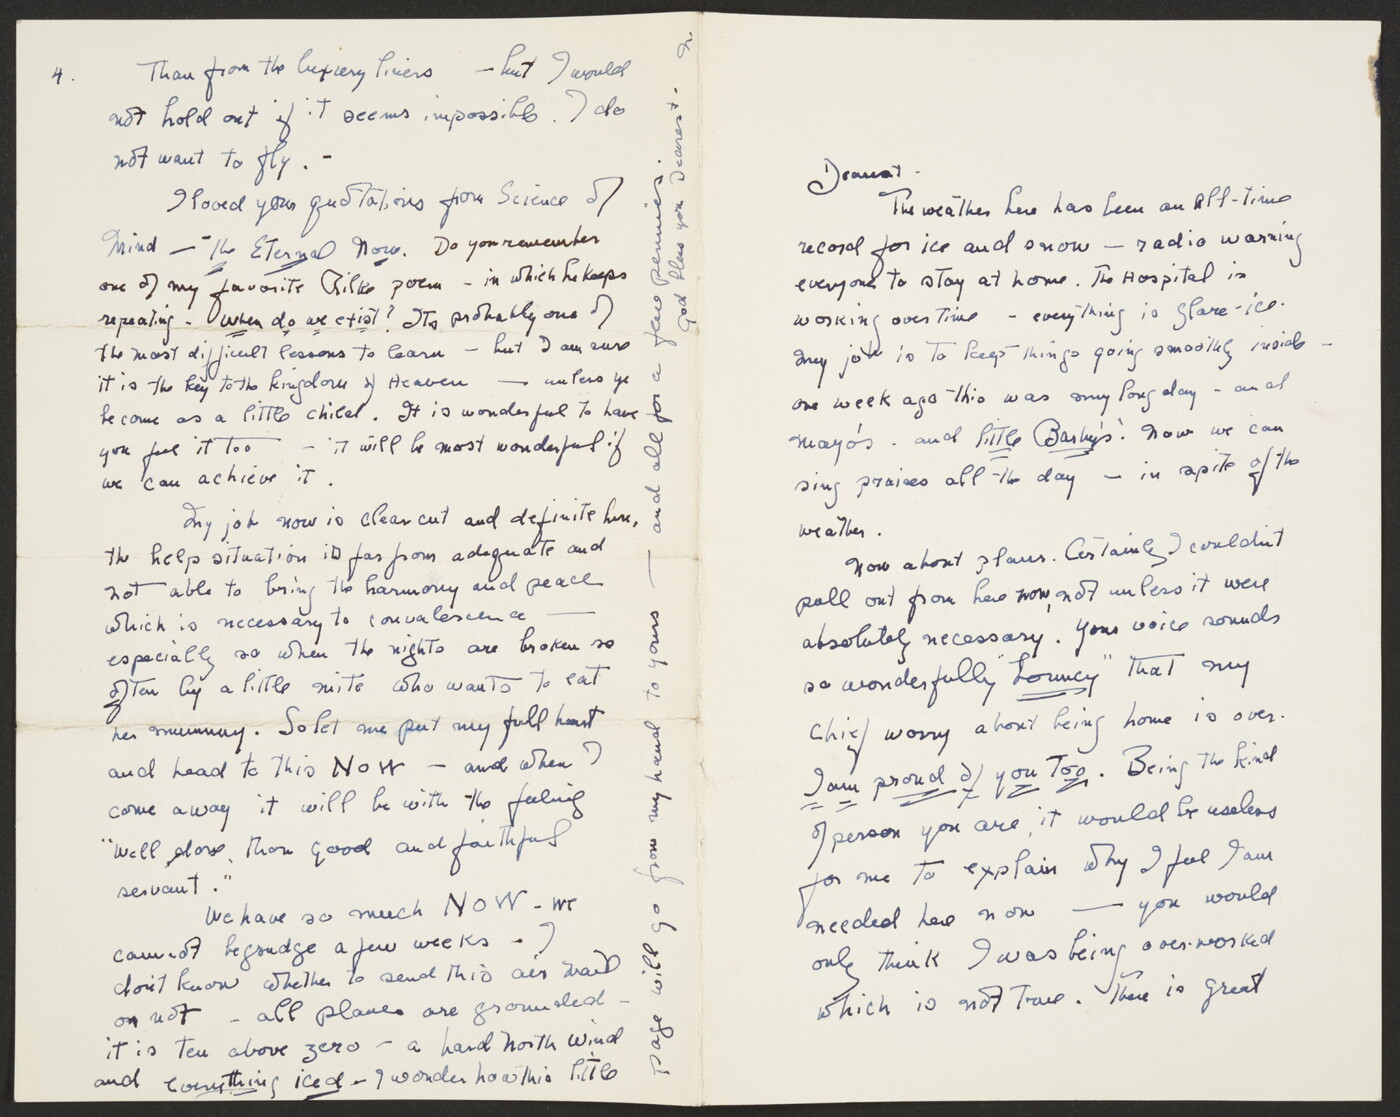 Dearest.
The weather here has been an All-time
record for ice and snow — radio warning
everyone to stay at home. The Hospital is
working over time - everything is glare-ice.
My job is to keep things going smoothly inside -
one week ago this was my long day - and
Mayo's - and little Barby's! Now we can
sing praises all the day — in spite of the
weather.
Now about plans. Certainly I couldn't
pull out from here now, not unless it were
absolutely necessary. Your voice sounds
so wonderfully "bouncy" that my
chief worry about being home is over.
I am proud of you Too. Being the kind
of person you are, it would be useless
for me to explain why I feel I am
needed here now — you would
only think I was being over-worked
which is not True. There is great
4.
Than from the luxury liners - but I would
not hold out if it seems impossible. I do
not want to fly. -
I loved your quotations from Science of
Mind — "The Eternal Now. Do you remember
one of my favorite Rilke poem - in which he keeps
repeating - When do we exist? Its probably one of
the most difficult lessons to learn - but I am sure
it is the key to the kingdom of Heaven — unless ye
become as a little child. It is wonderful to have
you feel it too - it will be most wonderful if
we can achieve it.
My job now is clear cut and definite here,
the help situation is far from adequate and
not able to bring the harmony and peace
which is necessary to convalescence —
especially so when the nights are broken so
often by a little mite who wants to eat
her mummy. So let me put my full heart
and head to this NOW - and when I
come away it will be with the feeling
"Well done, thou good and faithful
servant."
We have so much NOW - we
cannot begrudge a few weeks - I
don't know whether to send this air mail
or not - all planes are grounded -
it is Ten above zero - a hard North Wind
and everything iced - I wonder how this little
page will go from my hand to yours — and all for a few pennies.
God bless you Dearest -